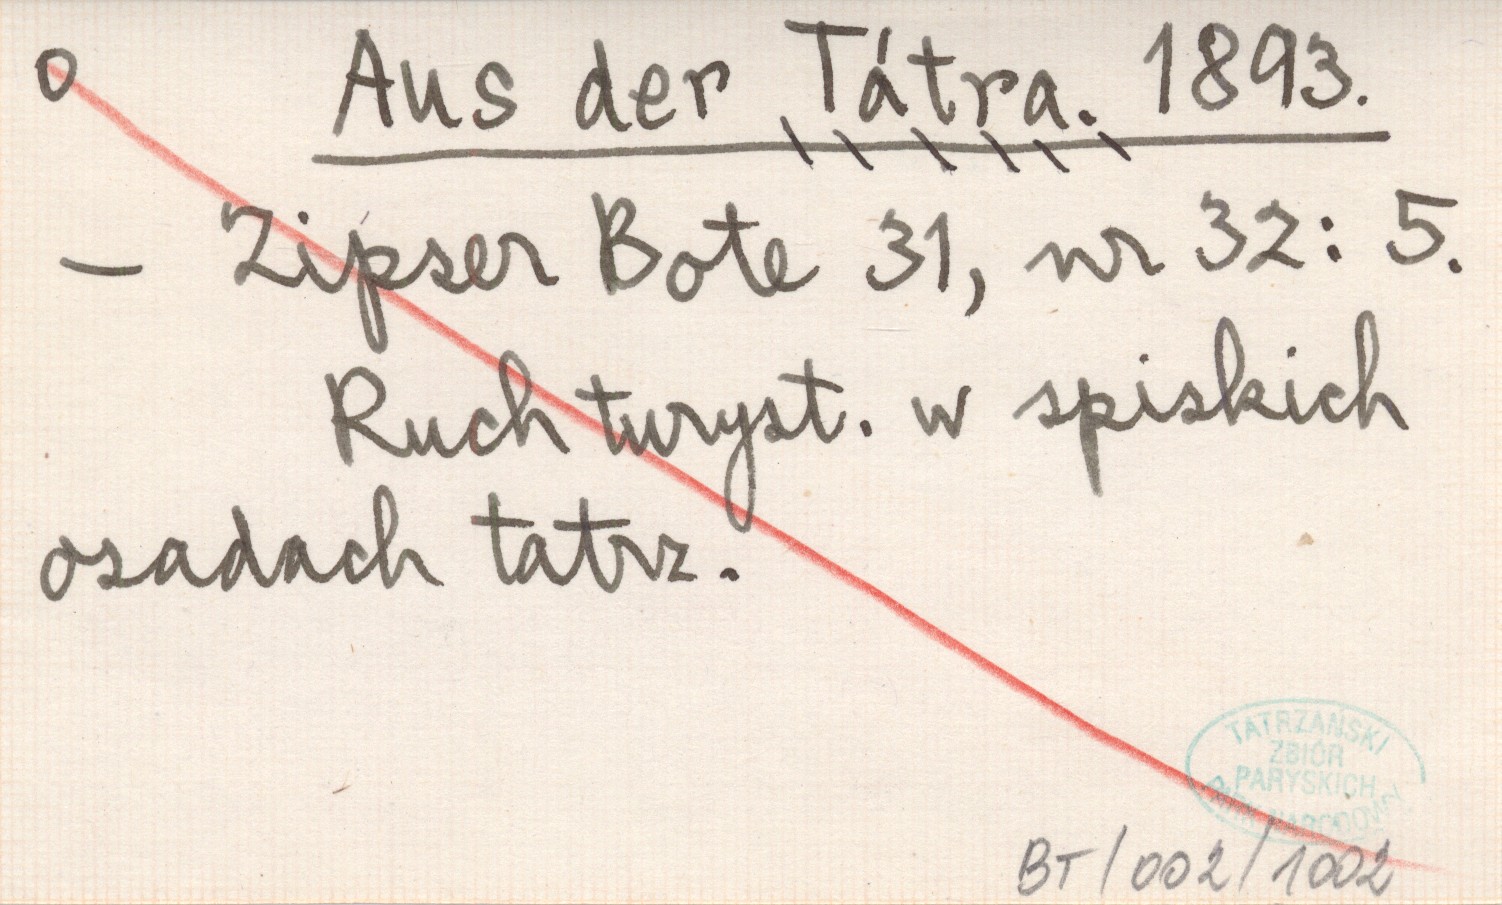 o Aus der Tátra. 1893.
– Zipser Bote 31, nr 32: 5.
Ruch turyst. w spiskich
osadach tatrz.
TATRZAŃSKI
ZBIÓR
PARYSKICH
PARK NARODOWY
BT/002/1002